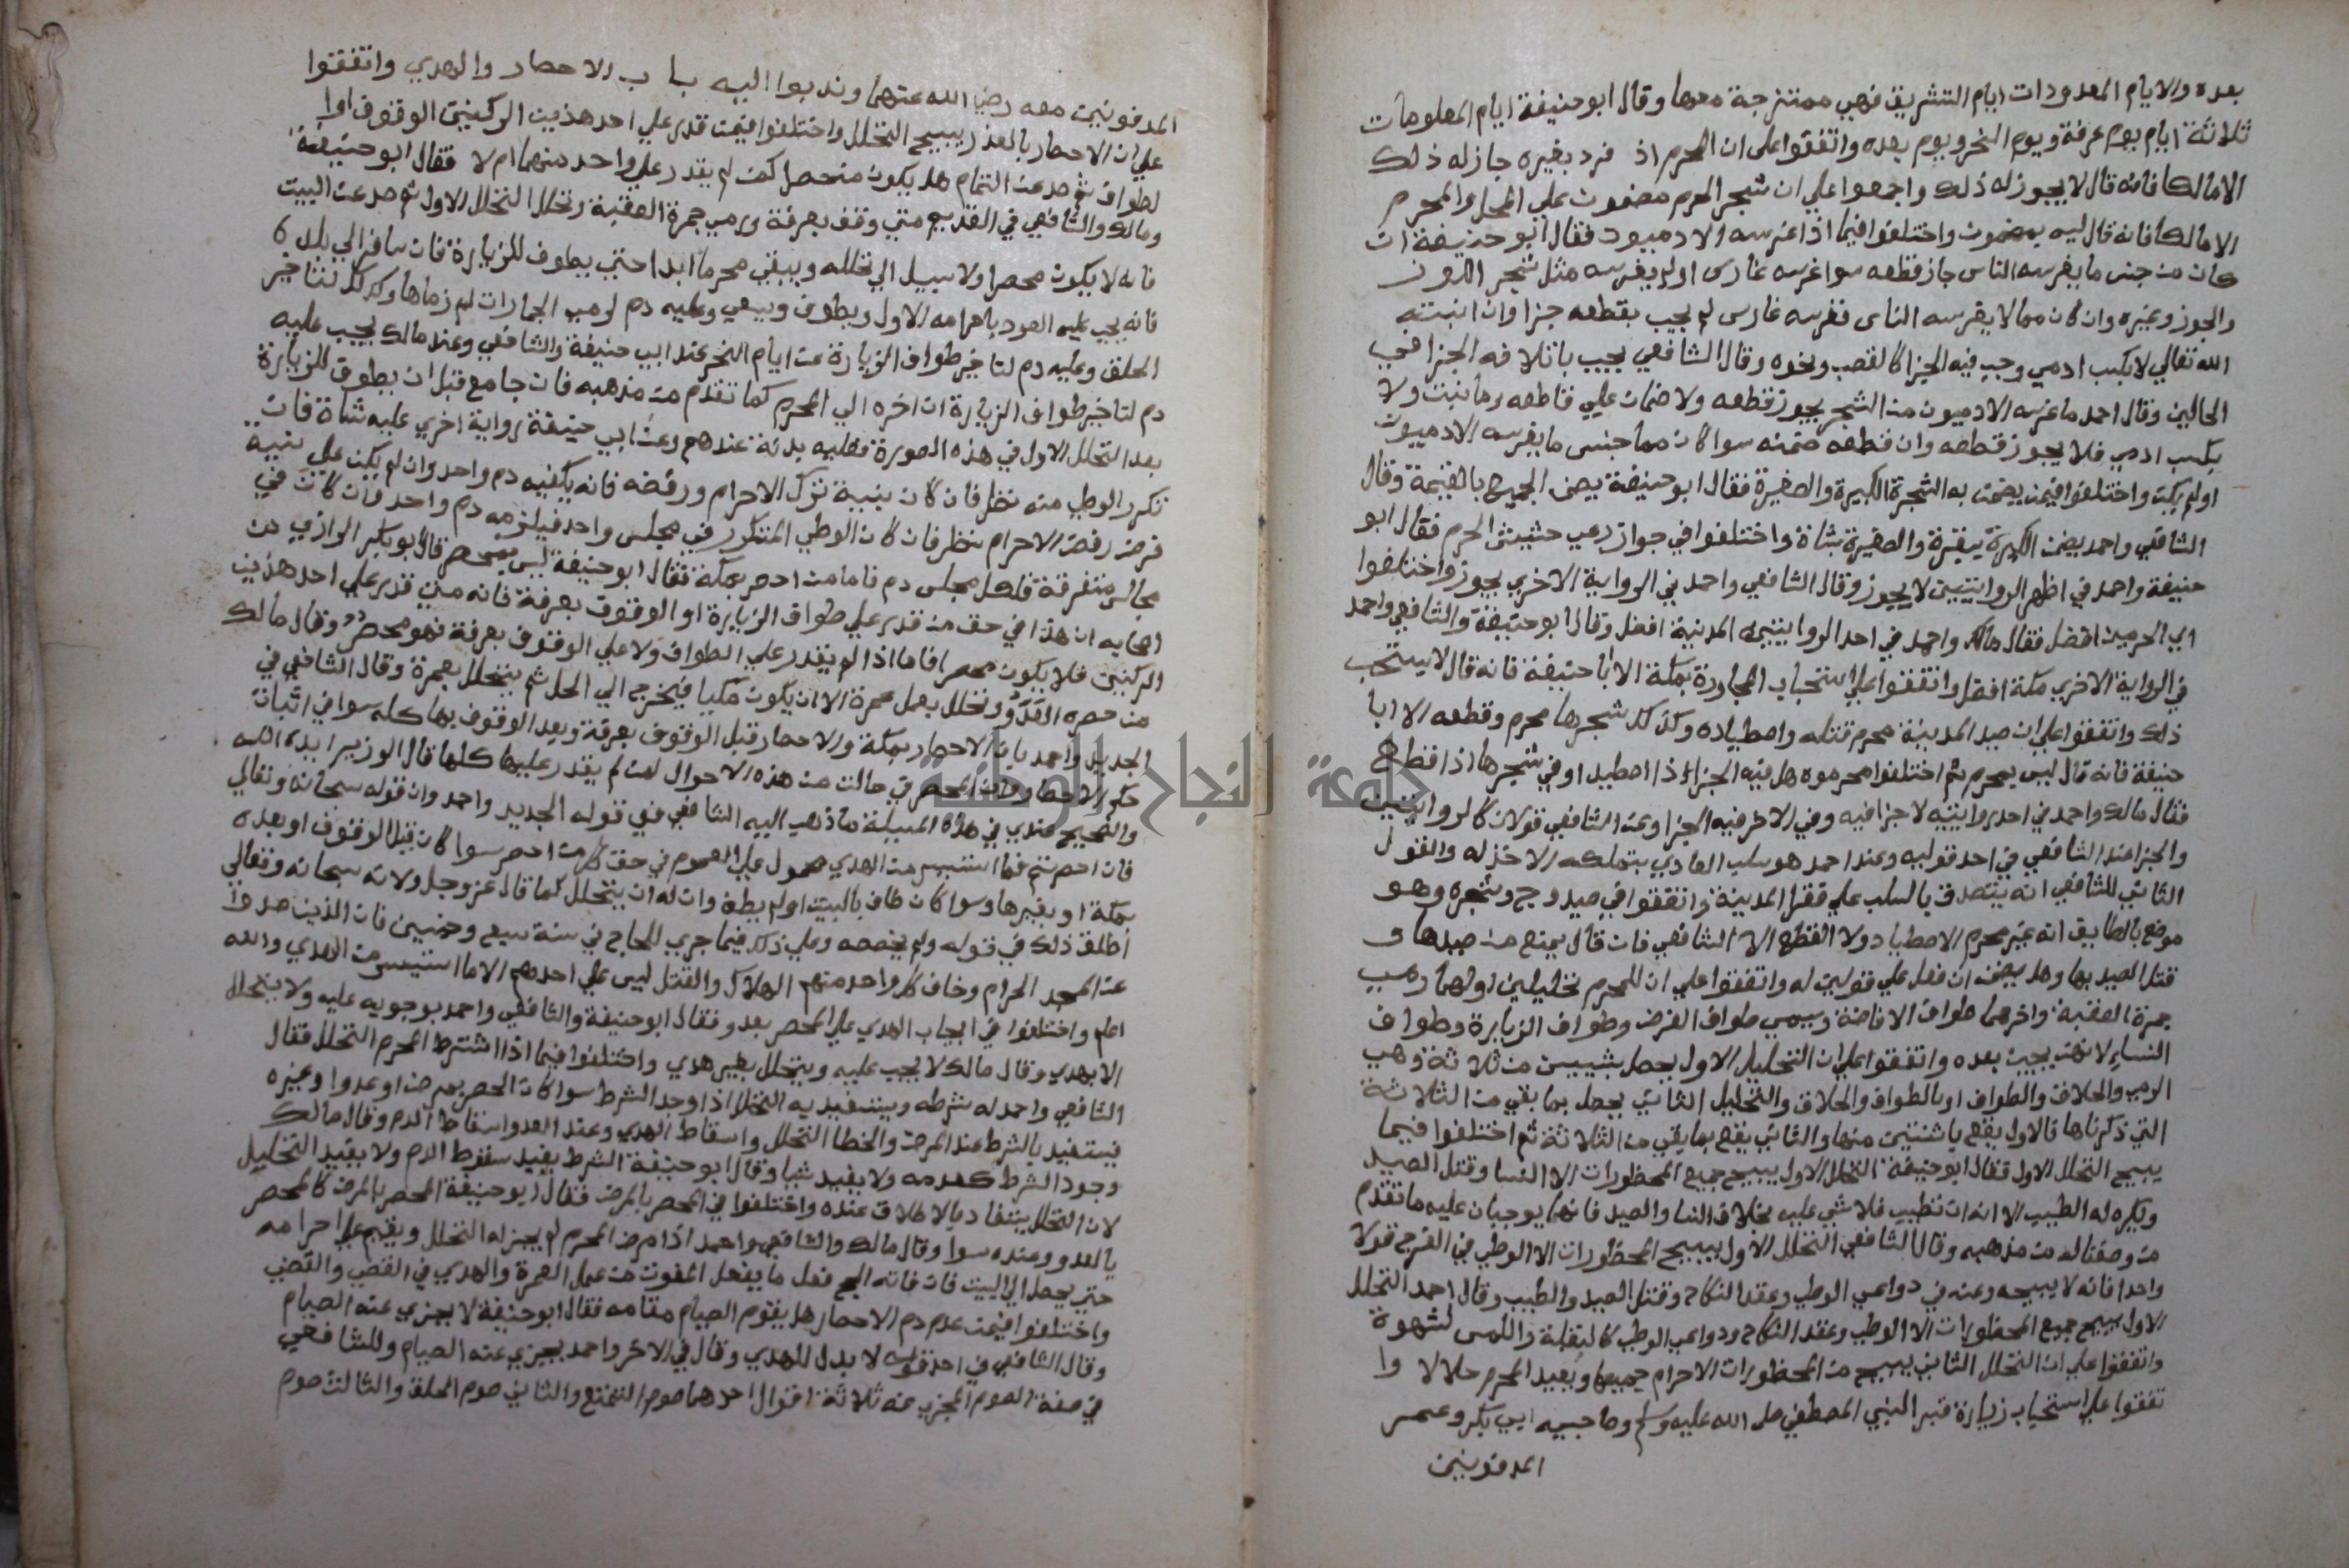 بعده والايام المعدودات ايام التشريق فهي ممتزجة معها وقال ابوحنيفة ايام المعلومات
ثلاثة ايام يوم عرفة ويوم النحر ويوم بعده واتفقوا على ان المحرم اذ فرد بغيره جاز له ذلك
الا مالكا فانه قال لا يجوز له ذلك واجمعوا علي ان شجر الحرم مضمون علي المحل والمحرم
الا مالكا فانه قال ليس بمضمون واختلفوا فيما اذا غرسه الادميون فقال ابو حنيفة ان
كان من جنس ما يغرسه الناس جاز قطعه سوا غرسه غارس او لم يغرسه مثل شجر اللوز
والجوز وغيره وان كان مما لا يغرسه الناس فغرسه غارس لم يجب بقطعه جزا وان انبته
الله تعالي لا بكسب ادمي وجب فيه الجزا كالقصب ونحوه وقال الشافعي يجب باتلافه الجزا في
الحالين وقال احمد ما غرسه الادميون من الشجر يجوز قطعه ولا ضمان علي قاطعه وما نبت ولا
بكسب ادمي فلا يجوز قطعه وان قطعه ضمنه سوا كان مما جنس ما يغرسه الادميون
او لم يكن واختلفوا فيمن يضمن به الشجرة الكبيرة والصغيرة فقال ابو حنيفة يضمن الجميع بالقيمة وقال
الشافعي واحمد يضمن الكبيرة ببقرة والصغيرة بشاة واختلفوا في جواز رعي حشيش الحرم فقال ابو
حنيفة واحمد في اظهر الروايتين لا يجوز وقال الشافعي واحمد في الرواية الاخري يجوز واختلفوا
اي الحرمين افضل فقال مالك واحمد في احد الروايتين المدينة افضل وقال ابو حنيفة والشافعي واحمد
في الرواية الاخري مكة افضل واتفقوا علي استحباب المجاورة بمكة الا ابا حنيفة فانه قال لا يستحب
ذلك واتفقوا علي ان صيد المدينة محرم قتله واصطياده وكذلك شجرها محرم وقطعه الا ابا
حنيفة فانه قال ليس بمحرم ثم اختلفوا محرموه هل فيه الجزا اذا اصطيد او في شجرها اذا قطع
فقال مالك واحمد في احد روايتيه لا جزا فيه وفي الاخر فيه الجزا وعن الشافعي قولان كالروايتين
والجزا عند الشافعي في احد قوليه وعند احمد هو سلب العادي يتملكه الاخذ له والقول
الثاني للشافعي انه يتصدق بالسلب علي فقرا المدينة واتفقوا في صيد وج وشجره وهو
موضع بالطايف انه غير محرم الاصطياد ولا القطع الا الشافعي فان قال يمنع من صيدها و
قتل الصيد بها وهل يضمن ان فعل علي قولين له واتفقوا علي ان للمحرم تحليلين اولهما رمي
جمرة العقبة واخرهما طواف الافاضة ويسمي طواف الفرض وطواف الزيارة وطواف
النساء لانهن يجبن بعده واتفقوا علي ان التحليل الاول يحصل بشيين من ثلاثة وهي
الرمي والحلاق والطواف او بالطواف والحلاق والتحليل الثاني يحصل بما بقي من الثلاثة
التي ذكرناها فالاول يقع باثنتين منها والثاني يقع بما بقي من الثلاثة ثم اختلفوا فيما
يبيح التحلل الاول فقال ابو حنيفة التحلل الاول يبيح جميع المحظورات الا النسا وقتل الصيد
ويكره له الطيب الا انه ان تطيب فلا شي عليه بخلاف النسا والصيد فانهما يوجبان عليه ما تقدم
من وصفنا له من مذهبه وقال الشافعي التحلل الاول يبيح المحظورات الا الوطي في الفرج قولا
واحدا فانه لا يبيحه وعنه في دواعي الوطي وعقد النكاح وقتل الصيد والطيب وقال احمد التحلل
الاول يبيح جميع المحظورات الا الوطي وعقد النكاح ودواعي الوطي كالقبلة واللمس لشهوة
واتفقوا علي ان التحلل الثاني يبيح من المحظورات الاحرام جميعها ويعيد المحرم حلالا وا
تفقوا علي استحباب زيارة قبر النبي المصطفي صلى الله عليه وسلم وصاحبيه ابي بكر وعمر
المدفونين
المدفونين معه رضي الله عنهما وندبوا اليه باب الاحصار والهدي واتفقوا
علي ان الاحصار بالعذر يبيح التحلل واختلفوا فيمن قدر علي احد هذين الركنين الوقوف او ا
لطواف ثم صد عن التمام هل يكون منحصرا كمن لم يقدر علي واحد منهما ام لا فقال ابو حنيفة
ومالك والشافعي في القديم متي وقف بعرفة ورمي جمرة العقبة وتحلل التحلل الاول ثم صد عن البيت
فانه لا يكون محصرا ولا سبيل الي تحلله ويبقي محرما ابدا حتي يطوف للزيارة فان سافر الي بلده
فانه يجب عليه العود باحرامه الاول ويطوف ويسعي وعليه دم لرمي الجمارات لم زماها وكذلك لتاخير
الحلق وعليه دم لتاخير طواف الزيارة عن ايام النحر عند ابي حنيفة والشافعي وعند مالك يجب عليه
دم لتاخير طواف الزيارة ان اخره الي المحرم كما تقدم من مذهبه فان جامع قبل ان يطوف للزيارة
بعد التحلل الاول في هذه الصورة فعليه بدنة عندهم وعن ابي حنيفة رواية اخري عليه شاة فان
تكرر الوطي منه نظر فان كان بنية ترك الاحرام ورفضه فانه يكفيه دم واحد وان لم يكن علي نية
فرض رفض الاحرام ينظر فان كان الوطي المتكرر في مجلس واحد فيلزمه دم واحد فان كان في
مجالس متفرقة فلكل مجلس دم فاما من احصر بمكة فقال ابو حنيفة ليس بمحصر قال ابو بكر الرازي من
اصحابه ان هذا في حق من قدر علي طواف الزيارة او الوقوف بعرفة فانه متي قدر علي احد هذين
الركنين فلا يكون محصرا فاما اذا لم يقدر علي الطواف ولا علي الوقوف بعرفة فهو محصر وقال مالك
من حصره العدو وتحلل بعمل عمرة الا ان يكون مكيا فيخرج الي الحل ثم يتحلل بعمرة وقال الشافعي في
الجديد واحمد بان الاحصار بمكة والاحصار قبل الوقوف بعرفة وبعد الوقوف بها كله سوا في اثبات
حكم الاحصار وقال المحصر في حالت من هذه الاحوال لمن لم يقدر عليها كلها قال الوزير ايده الله
والصحيح عندي في هذه المسيلة ما ذهب اليه الشافعي في قوله الجديد واحمد وان قوله سبحانه وتعالي
فان احصرتم فما استيسر من الهدي محمول علي العموم في حق كل من احصر سوا كان قبل الوقوف او بعده
بمكة او بغيرها وسوا كان طاف بالبيت او لم يطف وان له ان يتحلل كما قال عز وجل ولانه سبحانه وتعالي
اطلق ذلك في قوله ولم يخصصه وعلي ذلك فيما جري للحاج في سنة سبع وخمسين فان الذين صدوا
عن المسجد الحرام وخاف كل واحد منهم الهلاك والقتل ليس علي احدهم الا ما استيسر من الهدي والله
اعلم واختلفوا في ايجاب الهدي علي المحصر بعدو فقال ابو حنيفة والشافعي واحمد بوجوبه عليه ولا يتحلل
الا بهدي وقال مالك لا يجب عليه ويتحلل بغير هدي واختلفوا فيما اذا اشترط المحرم التحلل فقال
الشافعي واحمد له شرطه ويستفيد به التحلل اذا وجد الشرط سوا كان الحصر بمرض او عدوا وغيره
فيستفيد بالشرط عند المرض والخطا التحلل واسقاط الهدي وعند العدو اسقاط الدم وقال مالك
وجود الشرط كعدمه ولا يفيد شيا وقال ابو حنيفة الشرط يفيد سقوط الدم ولا يفيد التحليل
لان التحلل يستفاد بالاطلاق عنده واختلفوا في المحصر بالمرض فقال ابو حنيفة المحصر بالمرض كالمحصر
بالعدو وعنده سوا وقال مالك والشافعي واحمد اذا مرض المحرم لم يجز له التحلل ويقيم علي احرامه
حتي يصل الي البيت فان فاته الحج فعل ما يفعل المفوت من عمل العمرة والهدي في القضي والقضي
واختلفوا فيمن عدم دم الاحصار هل يقوم الصيام مقامه فقال ابو حنيفة لا يجزي عنه الصيام
وقال الشافعي في احد قوليه لا بدل للهدي وقال في الاخر واحمد يجزي عنه الصيام وللشافعي
في صفة الصوم المجزي عنه ثلاثة اقوال احدهما صوم التمتع والثاني صوم الحلق والثالث صوم
جامعة النجاح الوطنية